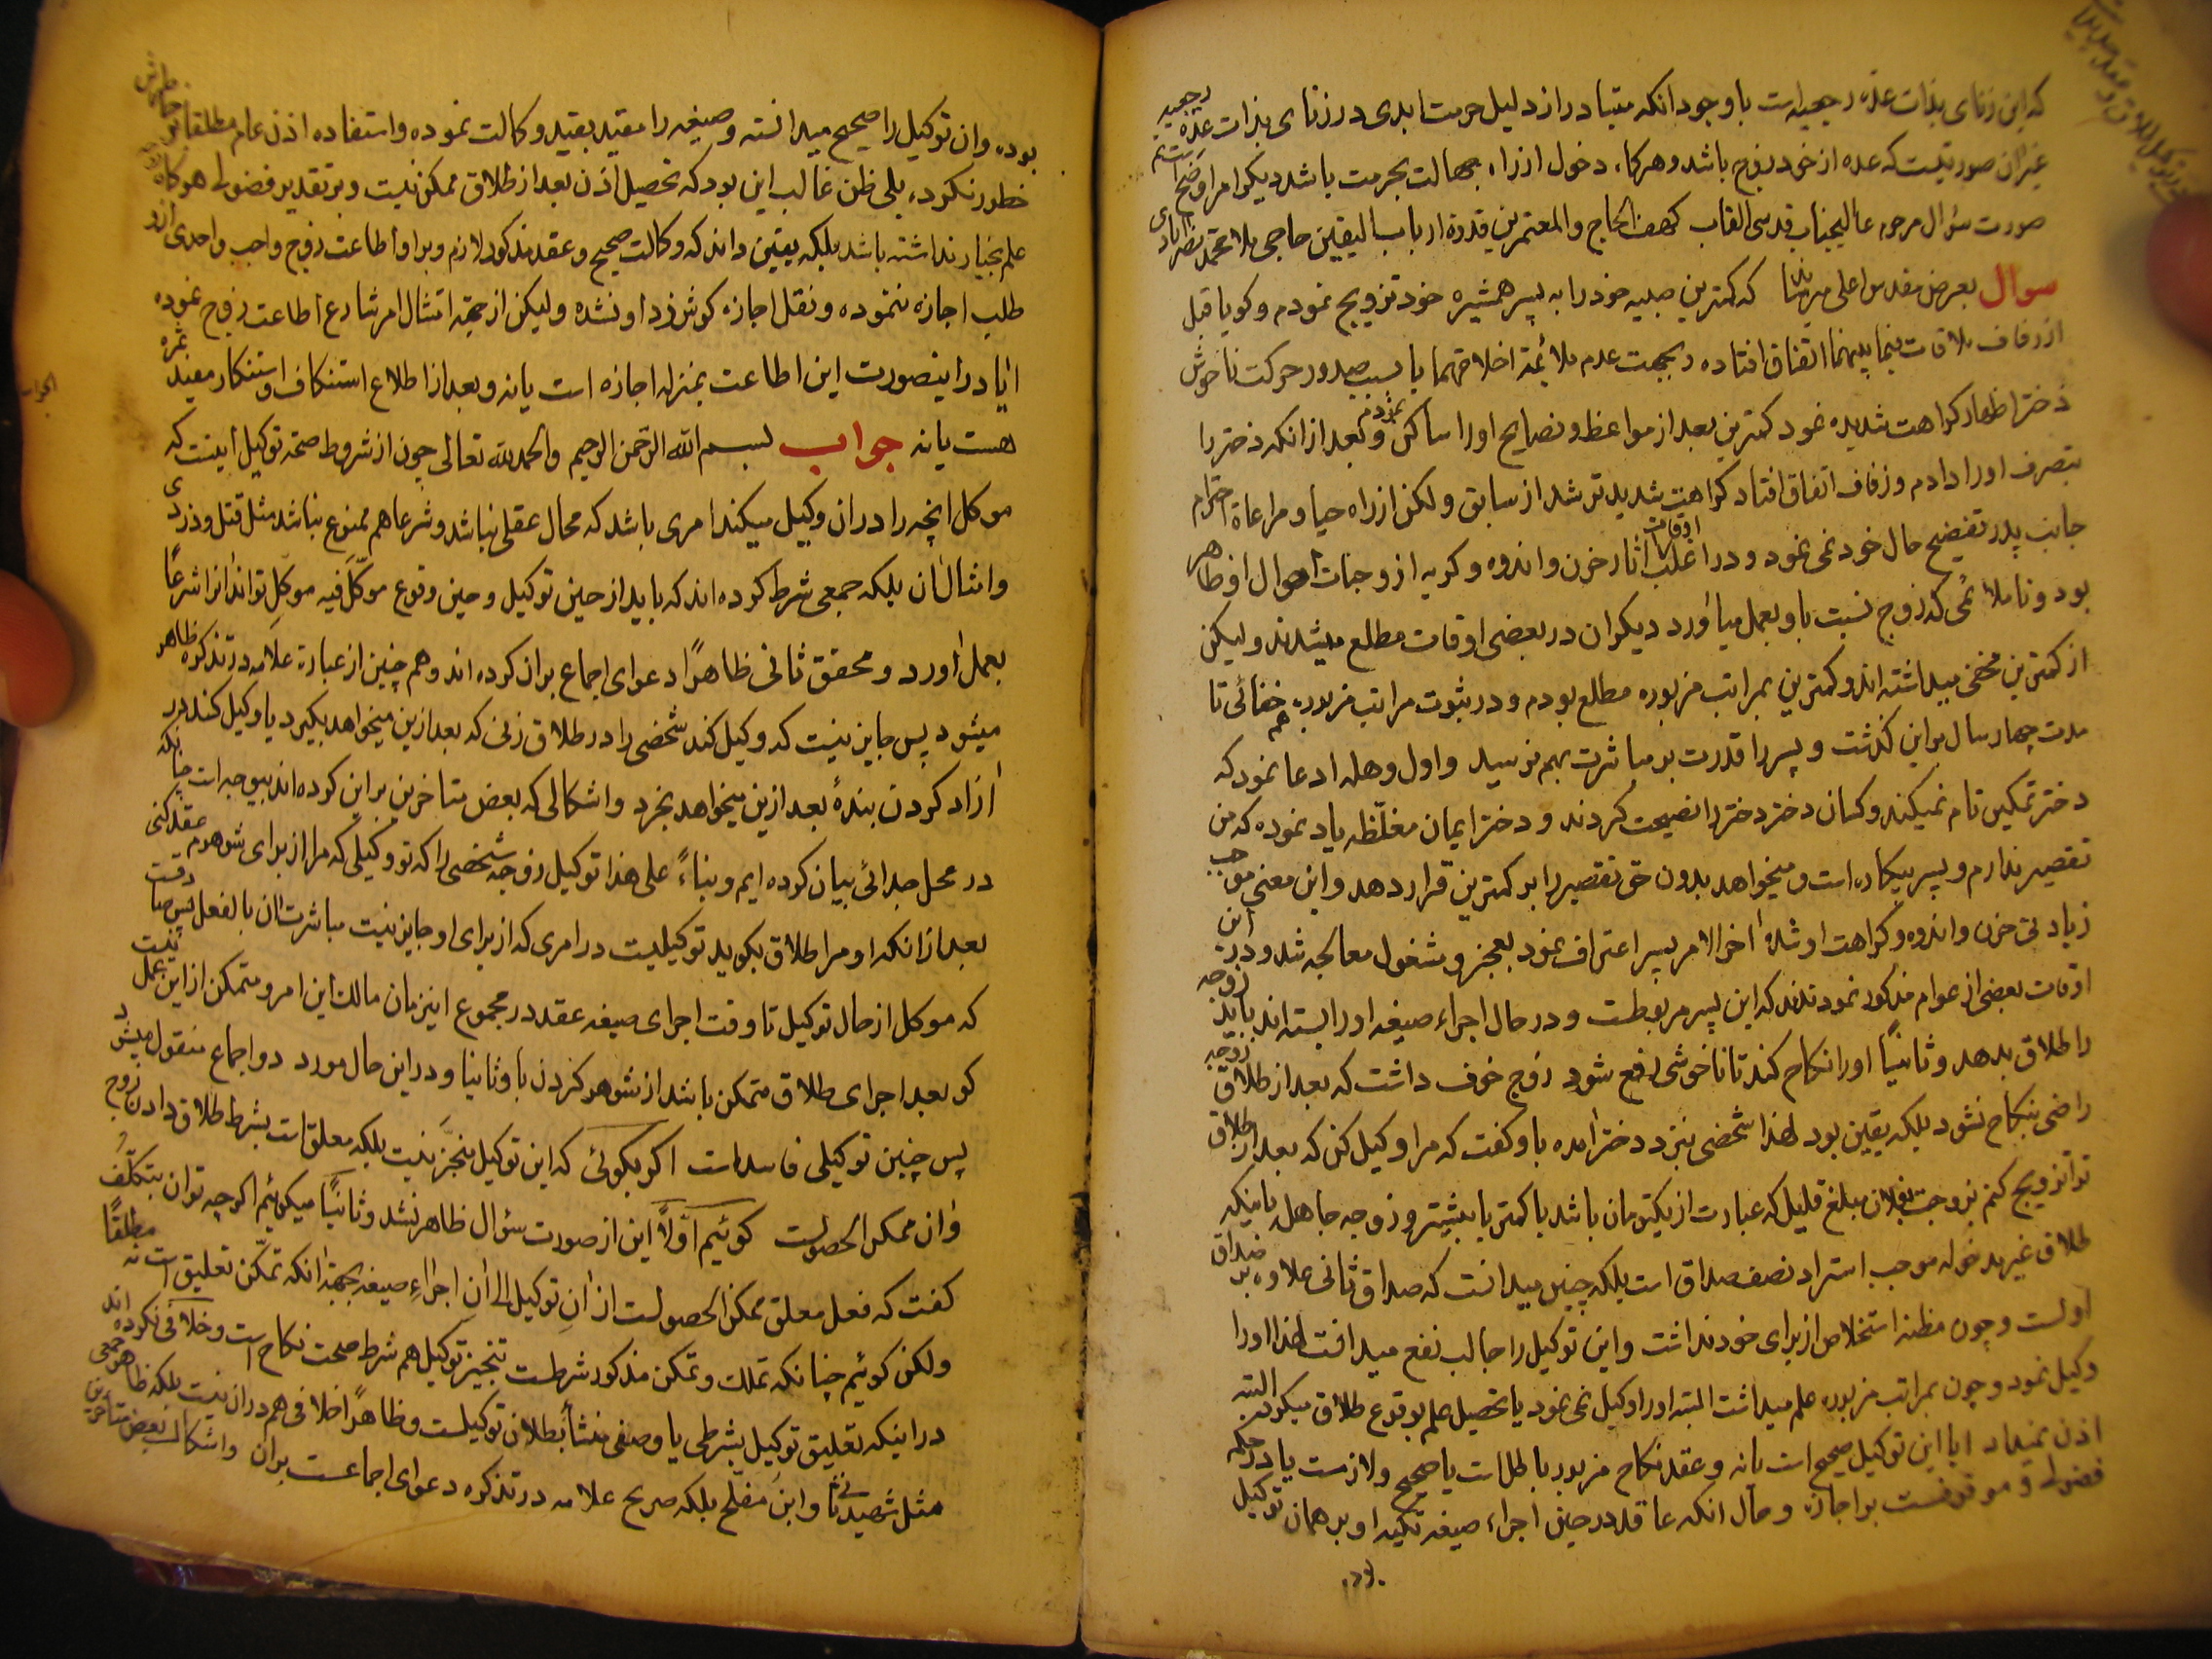 که این زنای بذات عدّه رجعیه است با وجود انکه متبادر از دلیل حرمت ابدی در زنای بذات عده رجعیه
غیر ان صورتیست که عده از خود زوج باشد و هرکاه دخول از راه جهالت بحرمت باشد دیکر امر اوضح است
صورت سؤال مرحوم عالیجناب قدسی القاب کهف الحاج والمعتمرین قدوة ارباب الیقین حاجی ملا محمد
سوال بعرض مقدس اعلی میرساند که کمترین صبیه خود را به پسر همشیره خود تزویج نمودم و کویا قبل
از زفاف ملاقات بینهما اتفاق افتاده و بجهت عدم ملائمة اخلاقهما یا بسبب صدور حرکت ناخوش
دختر اظهار کراهت شدیده نمود کمترین بعد از مواعظ و نصایح او را ساکن نمودم و بعد از انکه دختر را
بتصرف او دادم و زفاف اتفاق افتاد کراهت شدیدتر شد از سابق و لکن از راه حیا و مراعاة احترام
جانب پدر تفضیح حال خود نمی نمود و در اغلب اوقات اثار حزن و اندوه و کریه از وجنات احوال او ظاهر
بود و ناملائمی که زوج نسبت باو بعمل میاورد دیکران در بعضی اوقات مطلع میشدند و لیکن
از کمترین مخفی میداشته اند و کمترین بمراتب مزبوره مطلع بودم و در ثبوت مراتب مزبوره هم خفائی تا
مدت چهار سال بر این کذشت و پسر را قدرت بر مباشرت بهم نرسید و اول وهله ادعا نمود که
دختر تمکین تام نمیکند و کسان دختر دختر را نصیحت کردند و دختر ایمان مغلّظه یاد نموده که من
تقصیر ندارم و پسر بیکاره است و میخواهد بدون حق تقصیر را بر کمترین قرار دهد و این معنی موجب
زیادتی حزن و اندوه و کراهت او شد اخر الامر پسر اعتراف نمود بعجز و مشغول معالجه شد و در این
اوقات بعضی از عوام مذکور نمودند که این پسر مربوطست و در حال اجراء صیغه او را بسته اند باید زوجه
را طلاق بدهد و ثانیًا او را نکاح کند تا ناخوشی رفع شود زوج خوف داشت که بعد از طلاق زوجه
راضی بنکاح نشود بلکه یقین بود لهذا شخصی بنزد دختر امده باو کفت که مرا وکیل کن که بعد از طلاق
ترا تزویج کنم بزوجت بفلان مبلغ قلیل که عبارت از یکتومان باشد یا کمتر یا بیشتر و زوجه جاهل باینکه
طلاق غیر مدخوله موجب استرداد نصف صداق است بلکه چنین میدانست که صداق ثانی علاوه بر صداق
اولست و چون مظنه استخلاص از برای خود نداشت و این توکیل را جالب نفع میدانست لهذا او را
وکیل نمود و چون بمراتب مزبوره علم میداشت البته او را وکیل نمی نمود یا تحصیل علم بوقوع طلاق میکرد البته
اذن نمیداد ایا این توکیل صحیح است یا نه و عقد نکاح مزبور باطل است یا صحیح و لازمست یا در حکم
فضولی و موقوفست بر اجازه و حال انکه عاقد در حین اجراء صیغه تکیه او بر همان توکیل
بوده
بوده و ان توکیل را صحیح میدانسته و صیغه را مقید بقید وکالت نموده و استفاده اذن عام مطلقا بخاطرش
خطور نکرده بلی ظن غالب این بود که تحصیل اذن بعد از طلاق ممکن نیست و بر تقدیر فضولی هرکاه زوجه
علم بخیار نداشته باشد بلکه یقین داند که وکالت صحیح و عقد مذکور لازم و بر او اطاعت زوج واجب و احدی از او
طلب اجازه ننموده و نقل اجازه کوش زد او نشده و لیکن از جهة امتثال امر شارع اطاعت زوج نموده
ایا در اینصورت این اطاعت بمنزله اجازه است یا نه و بعد از اطلاع استنکاف و استنکار مفید ثمره
هست یا نه جواب بسم الله الرحمن الرحیم والحمد لله تعالی چون از شروط صحة توکیل اینست که
موکل انچه را در ان وکیل میکند امری باشد که محال عقلی نباشد و شرعا هم ممنوع نباشد مثل قتل و دزدی
و امثال ان بلکه جمعی شرط کرده اند که باید از حین توکیل و حین وقوع موکّل فیه موکل تواند انرا شرعًا
بعمل اورد و محقق ثانی ظاهرًا دعوای اجماع بر ان کرده اند و هم چنین از عبارة علامه در تذکره ظاهر
میشود پس جایز نیست که وکیل کند شخصی را در طلاق زنی که بعد ازین میخواهد بکیرد یا وکیل کند در
ازاد کردن بندۀ بعد ازین میخواهد بخرد و اشکالی که بعض متاخرین بر این کرده اند بیوجه است چنانکه
در محل جدائی بیان کرده ایم و بناءً علی هذا توکیل زوجه شخصی را که تو وکیلی که مرا از برای شوهرم عقد کنی
بعد از انکه او مرا طلاق بکوید توکیلیست در امری که از برای او جایز نیست مباشرت ان بالفعل پس صادقست
که موکل از حال توکیل تا وقت اجرای صیغه عقد در مجموع اینزمان مالک این امر و متمکن از این عمل نیست
کو بعد اجرای طلاق متمکن باشد از شوهر کردن باو ثانیا و در این حال مورد دو اجماع منقول میشود
پس چنین توکیلی فاسد است اکر بکوئی که این توکیل منجّز نیست بلکه معلق است بشرط طلاق دادن زوج
و ان ممکن الحصولست کوئیم اوّلاً این از صورت سؤال ظاهر نشد و ثانیًا میکوئیم اکر چه توان بتکلّف
کفت که فعل معلق ممکن الحصولست از ان توکیل الی ان اجراءِ صیغه بجهة انکه تمکّن تعلیق است نه مطلقًا
ولکن کوئیم چنانکه تملک و تمکن مذکور شرطست تنجیز توکیل هم شرط صحت نکاح است و خلافی نکرده اند
در اینکه تعلیق توکیل بشرطی یا وصفی منشأ بطلان توکیلست و ظاهرًا خلافی هم در ان نیست بلکه ظاهر جمعی
مثل شهید ثانی و ابن مفلح بلکه صریح علامه در تذکره دعوای اجماعست بر ان و اشکال بعض متأخرین